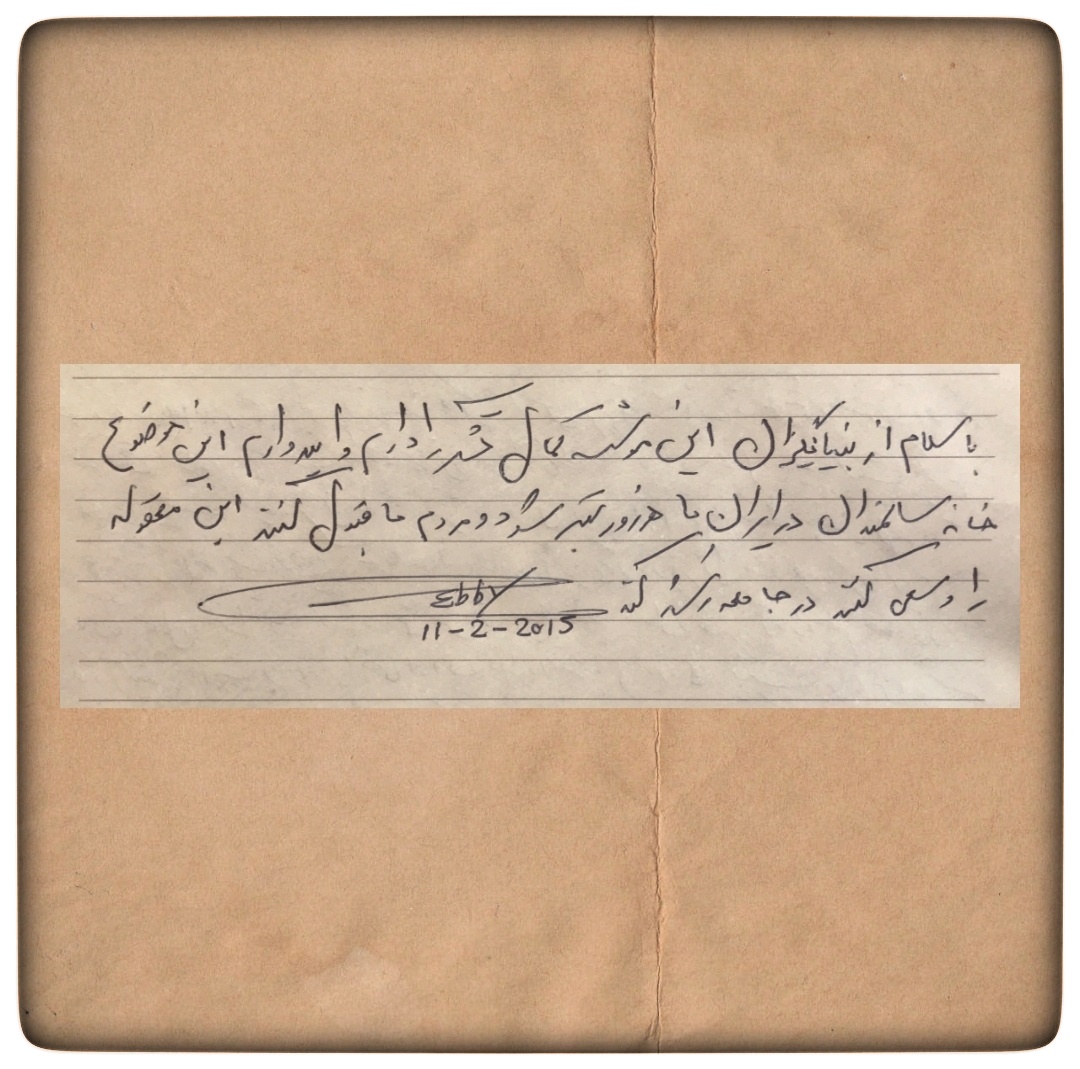 با سلام از بنیانگزاران این موسسه کمال تشکر را دارم و امیدوارم این موضوع
خانه سالمندان در ایران ما هرزورتر شود و مردم ما قبول کنند این مقوله
را و سعی کنند در جامعه رشد کند
Ebby
11-2-2015